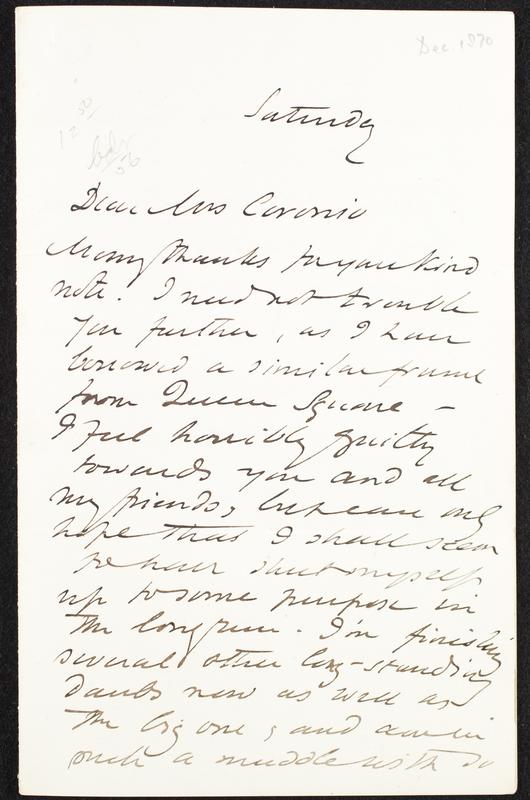 Dec. 1870
Saturday
Dear Mrs Coronio
Many thanks for your kind
note. I need not trouble
you further, as I have
borrowed a similar frame
from Queen Square –
I feel horribly guilty
towards you and all
my friends, but can only
hope that I shall seem
to have shut myself
up to some purpose in
the long run. I'm finishing
several other long-standing
daubs now as well as
the big one; and am in
such a muddle with so